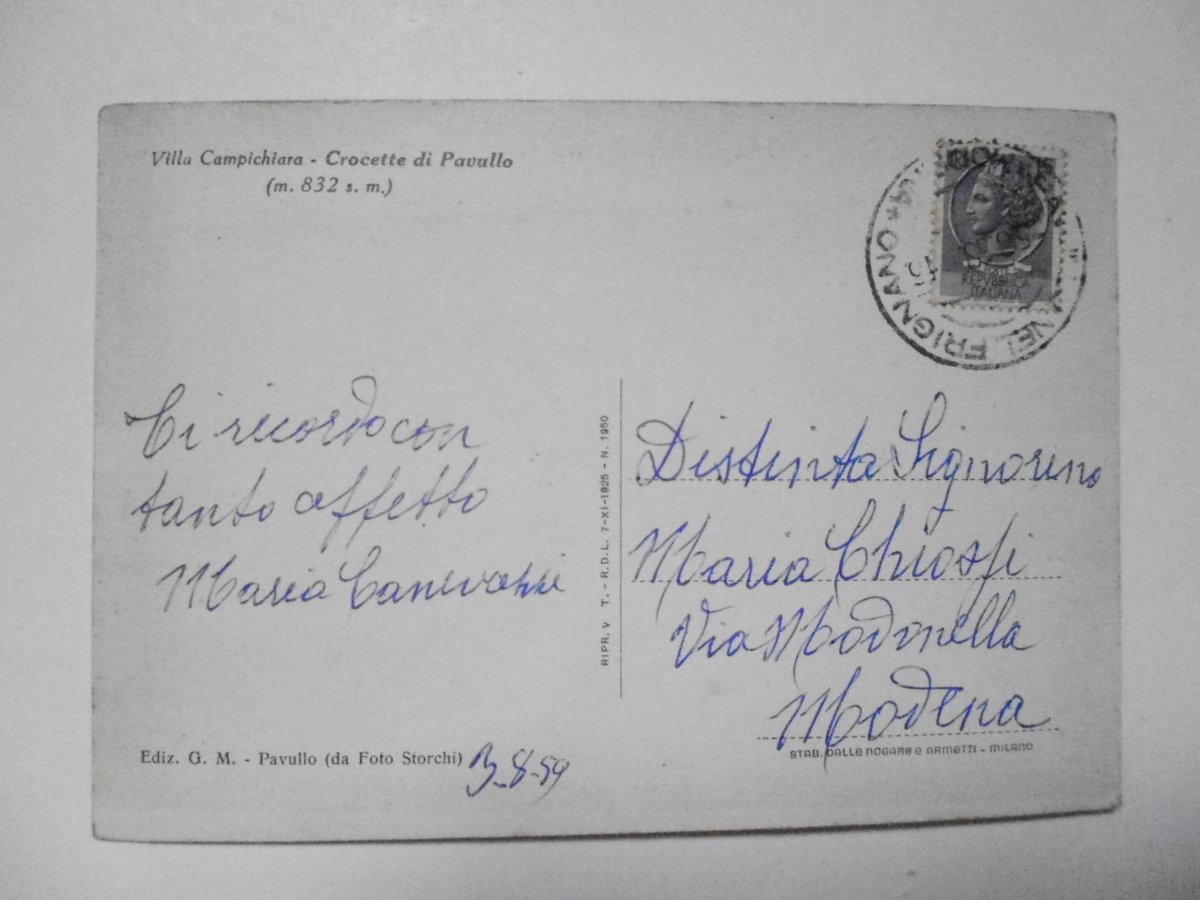 Villa Campichiara - Crocette di Pavullo
(m. 832 s. m.)
REPVBBLICA
ITALIANA
NEL FRIGNANO
Ti ricordo con
tanto affetto
Maria Canevazzi
RIPR. V T. - R.D.L. 7-XI-1925 - N. 1950
Distinta Signorina
Maria Chiossi
Via Modonella
Modena
STAB. DALLE NOGARE E ARMETTI - MILANO
Ediz. G. M. - Pavullo (da Foto Storchi)
3-8-59